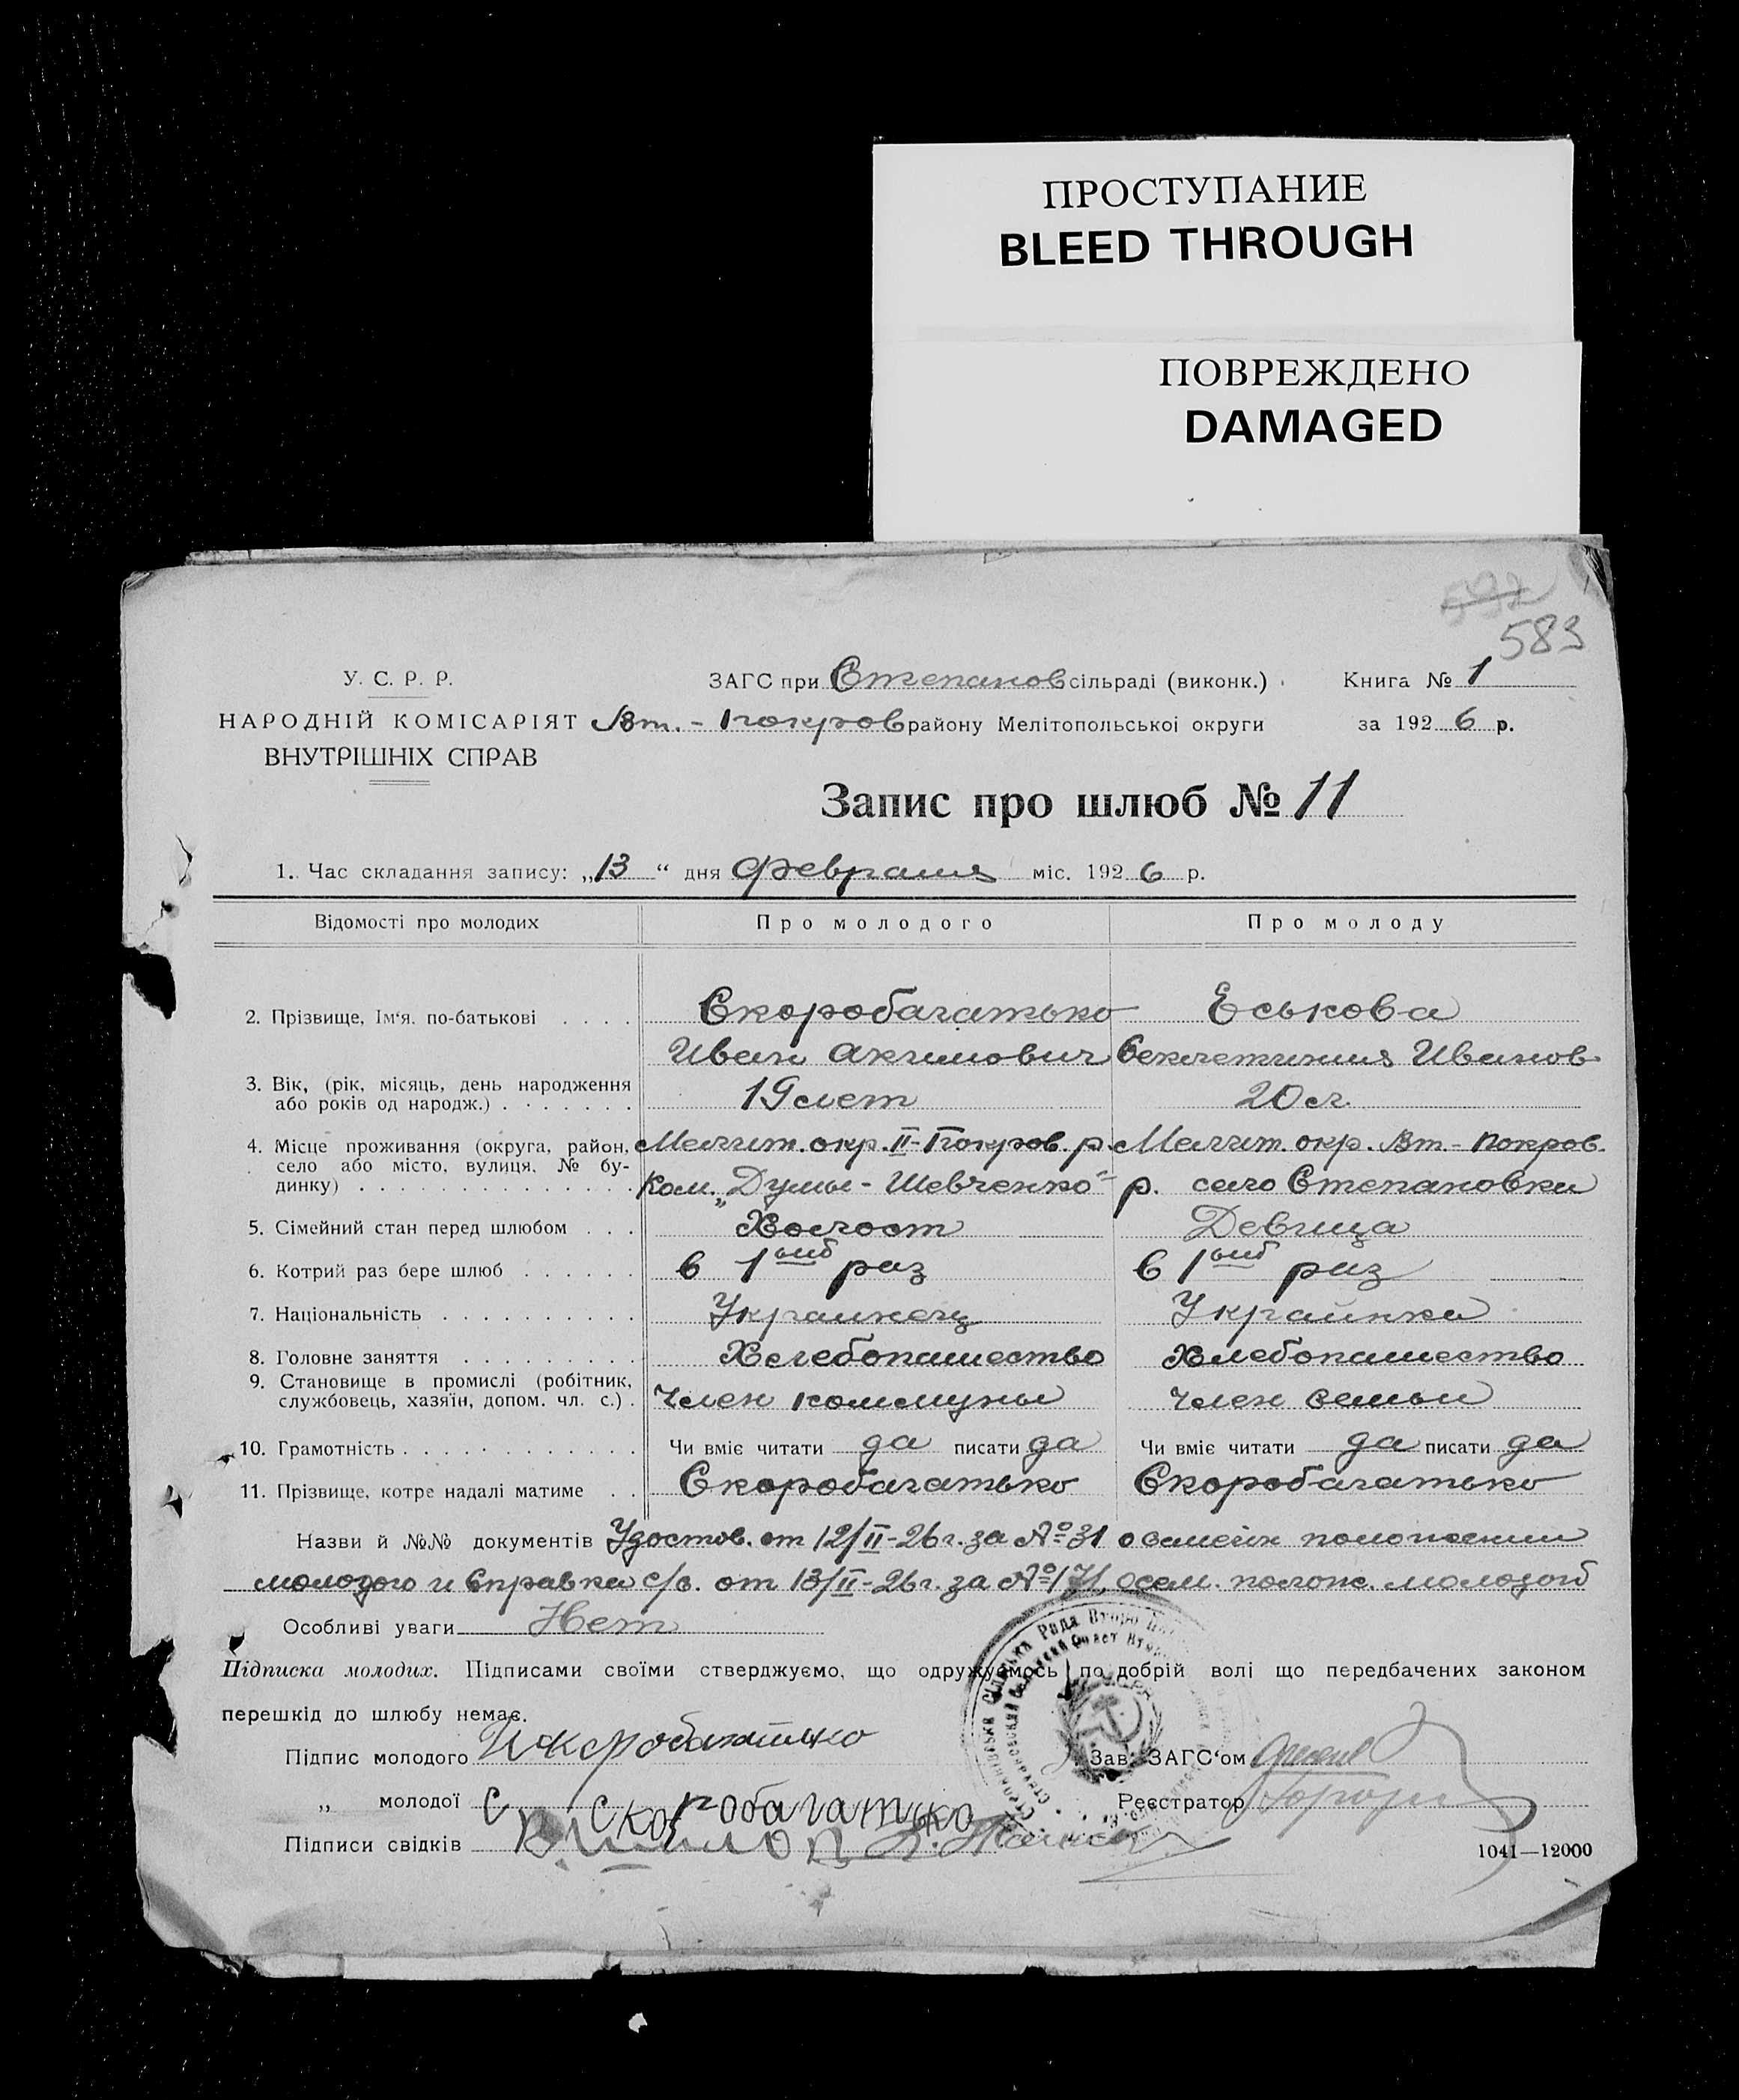 ПРОСТУПАНИЕ
BLEED THROUGH
ПОВРЕЖДЕНО
DAMAGED
583
У. С. Р. Р.
НАРОДНІЙ КОМІСАРІЯТ
ВНУТРІШНІХ СПРАВ
ЗАГС при Степанов сільраді (виконк.)
Вт. - Покров району Мелітопольської округи
Книга № 1
за 1926 р.
Запис про шлюб № 11
1. Час складання запису: „13“ дня февраля міс. 1926 р.
Відомості про молодих Про молодого Про молоду
2. Прізвище, Ім'я, по-батькові . . . . Скоробагатько Еськова
Иван Акимович Иванов
3. Вік, (рік, місяць, день народження
або років од народж.) . . . . . . . 19 лет 20 л.
4. Місце проживання (округа, район, Мелит. окр. II-Покров. р. Мелит. окр. Вт.- Покров.
село або місто, вулиця, № бу-
динку) . . . . . . . . . . . . . . Ком. „Думы - Шевченко" р. село Степановки
5. Сімейний стан перед шлюбом . . . Холост Девица
6. Котрий раз бере шлюб . . . . . . в 1ый раз в 1ый раз
7. Національність . . . . . . . . . . Украинец Украинка
8. Головне заняття . . . . . . . . . Хлебопашество Хлебопашество
9. Становище в промислі (робітник,
службовець, хазяїн, допом. чл. с.) . Член коммуны Член семьи
10. Грамотність . . . . . . . . . . . . Чи вміє читати да писати да Чи вміє читати да писати да
11. Прізвище, котре надалі матиме . . Скоробагатько Скоробагатько
Назви й №№ документів Удостов. от 12/II-26 г. за № 31 о семейн положении
молодого и Справка с/с. от 13/II-26 г. за № 171, о сем. полож. молодой
Особливі уваги Нет
Підписка молодих. Підписами своїми стверджуємо, що одружуємось по добрій волі що передбачених законом
перешкід до шлюбу немає.
Підпис молодого И Скоробагатько
Зав. ЗАГС'ом
„ молодої С Скоробагатько
Реєстратор
Підписи свідків
1041—12000